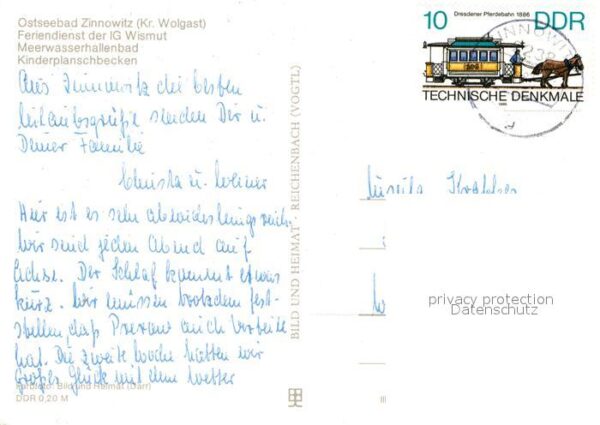 Ostseebad Zinnowitz (Kr. Wolgast)
Feriendienst der IG Wismut
Meerwasserhallenbad
Kinderplanschbecken
Aus Zinnowitz die besten
Urlaubsgrüße senden Dir u.
Deiner Familie
Christa u. Werner
Hier ist es sehr abwechslungsreich,
wir sind jeden Abend auf
Achse. Der Schlaf kommt etwas
kurz. Wir müssen trotzdem fest-
stellen, daß Prerow auch Vorteile
hat. Die zweite Woche hatten wir
Großes Glück mit dem Wetter
Farbfoto: Bild und Heimat (Darr)
DDR 0,20 M
BILD UND HEIMAT · REICHENBACH (VOGTL)
10 Dresdener Pferdebahn 1886 DDR
TECHNISCHE DENKMALE
1986
ZINNOWITZ
privacy protection
Datenschutz
III